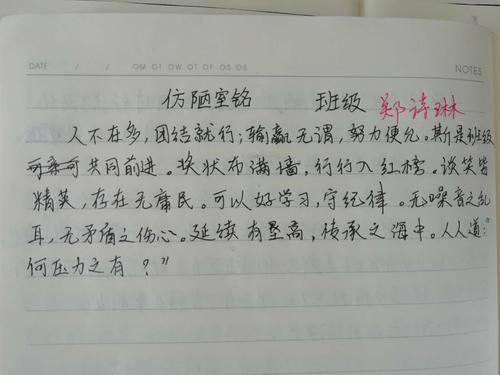 DATE / / OM OT OW OT OF OS OS NOTES
仿陋室铭 班级 郑诗琳
人不在多,团结就行;输赢无谓,努力便允。斯是班级
可亲可共同前进。奖状布满墙,行行入红榜。谈笑皆
精英,存在无庸民。可以好学习,守纪律。无噪音之乱
耳,无矛盾之伤心。延续有垒高,传承之海中。人人道:“
何压力之有?”